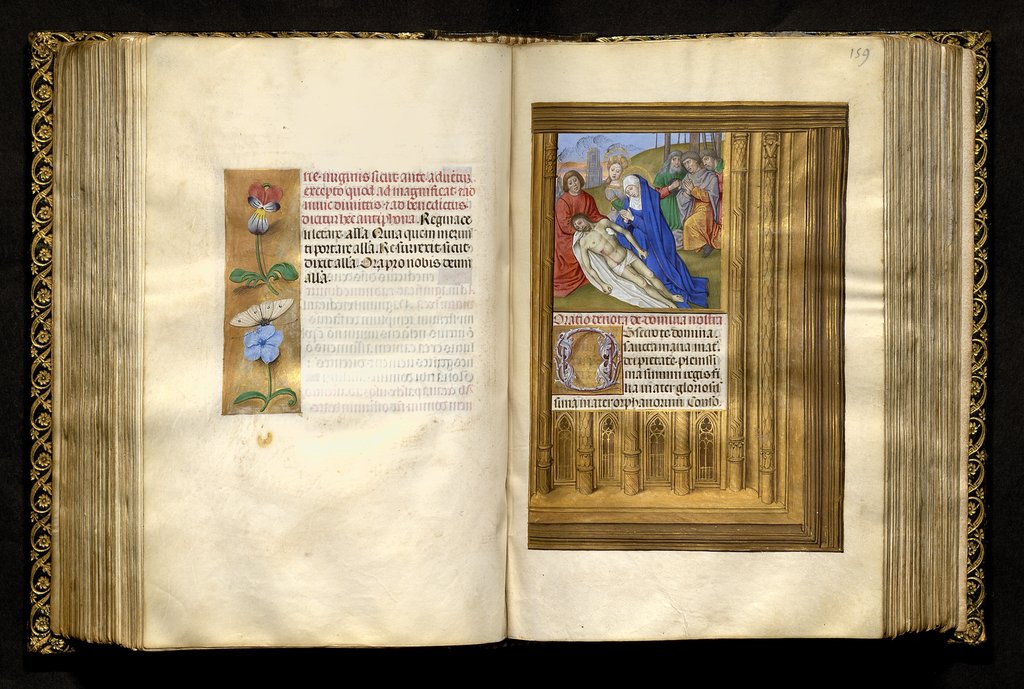 tie uirginis sicut ante aduẽtũ
excepto quod ad magnificat ⁊ ad
nunc dimittis ⁊ ad benedictus
dicitur hec antiphona. Regina ce
letare alla. Quia quem merui
ti portare alla. Resurrexit sicut
dixit alla. Ora pro nobis deum
alla.
159
Oratio deuota de domina nostra
Obsecro te domina
sancta maria mat̃
dei pietate plenissi
ma summi regis fi
lia mater gloriosis
sima mater orphanorum Conso